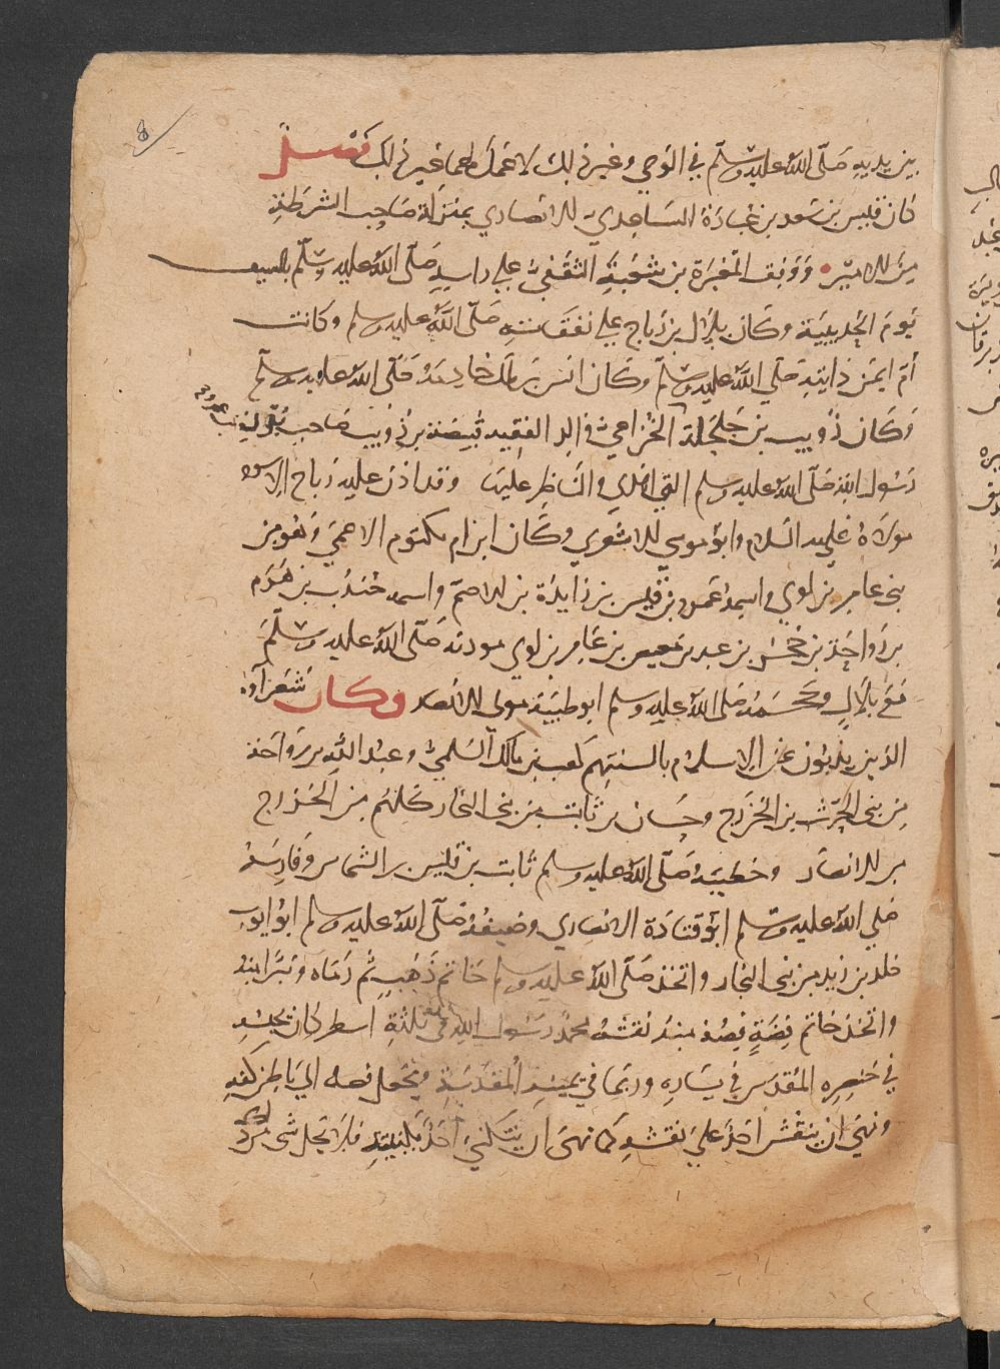 بين يديه صلى الله عليه وسلم في الوحي وغير ذلك لا عمل لهما غير ذلك فصل
كان قيس بن سعد بن عبادة الساعدي الانصاري بمنزلة صاحب الشرطة
من الامير ووقف المغيرة بن شعبة الثقفي على راسه صلى الله عليه وسلم بالسيف
يوم الحديبية وكان بلال بن رباح على نفقته صلى الله عليه وسلم وكانت
ام ايمن دايته صلى الله عليه وسلم وكان انس بن مالك خادمه صلى الله عليه وسلم
وكان ذويب بن حلحلة الخزاعي والد الفقيه قبيصة بن ذويب صاحب بدن
رسول الله صلى الله عليه وسلم التي اهدي والناظر عليها وقد اذن عليه رباح الاسود
مولاه عليه السلام وابو موسى الاشعري وكان ابن ام مكتوم الاعمى وهو من
بني عامر بن لوي واسمه عمرو بن قيس بن زايدة بن الاصم واسمه جندب بن هدم
بن رواحة بن حجر بن عبد بن معيص بن عامر بن لوي موذنه صلى الله عليه وسلم
مع بلال وحجمه صلى الله عليه وسلم ابو طيبة مولى الانصار وكان شعراوه
الذين يذبون عن الاسلام بالسنتهم كعب بن مالك السلمي وعبد الله بن رواحة
من بني الحرث بن الخزرج وحسان بن ثابت من بني النجار كلهم من الخزرج
من الانصار وخطيبه صلى الله عليه وسلم ثابت بن قيس بن الشماس وفارسه
صلى الله عليه وسلم ابو قتادة الانصاري وضيفه صلى الله عليه وسلم ابو ايوب
خلد بن زيد من بني النجار واتخذ صلى الله عليه وسلم خاتم ذهب ثم رماه وتبرا منه
واتخذ خاتم فضة فصه منه نقشه محمد رسول الله في ثلثة اسطر كان يحبسه
في خنصره المقدس في يساره وربما في يمينه المقدسة ويجعل فصه الى باطن كفه
ونهى ان ينقش احد على نقشه كما نهى ان يتكنى احد بكنيته فلا يحل شى من ذلك